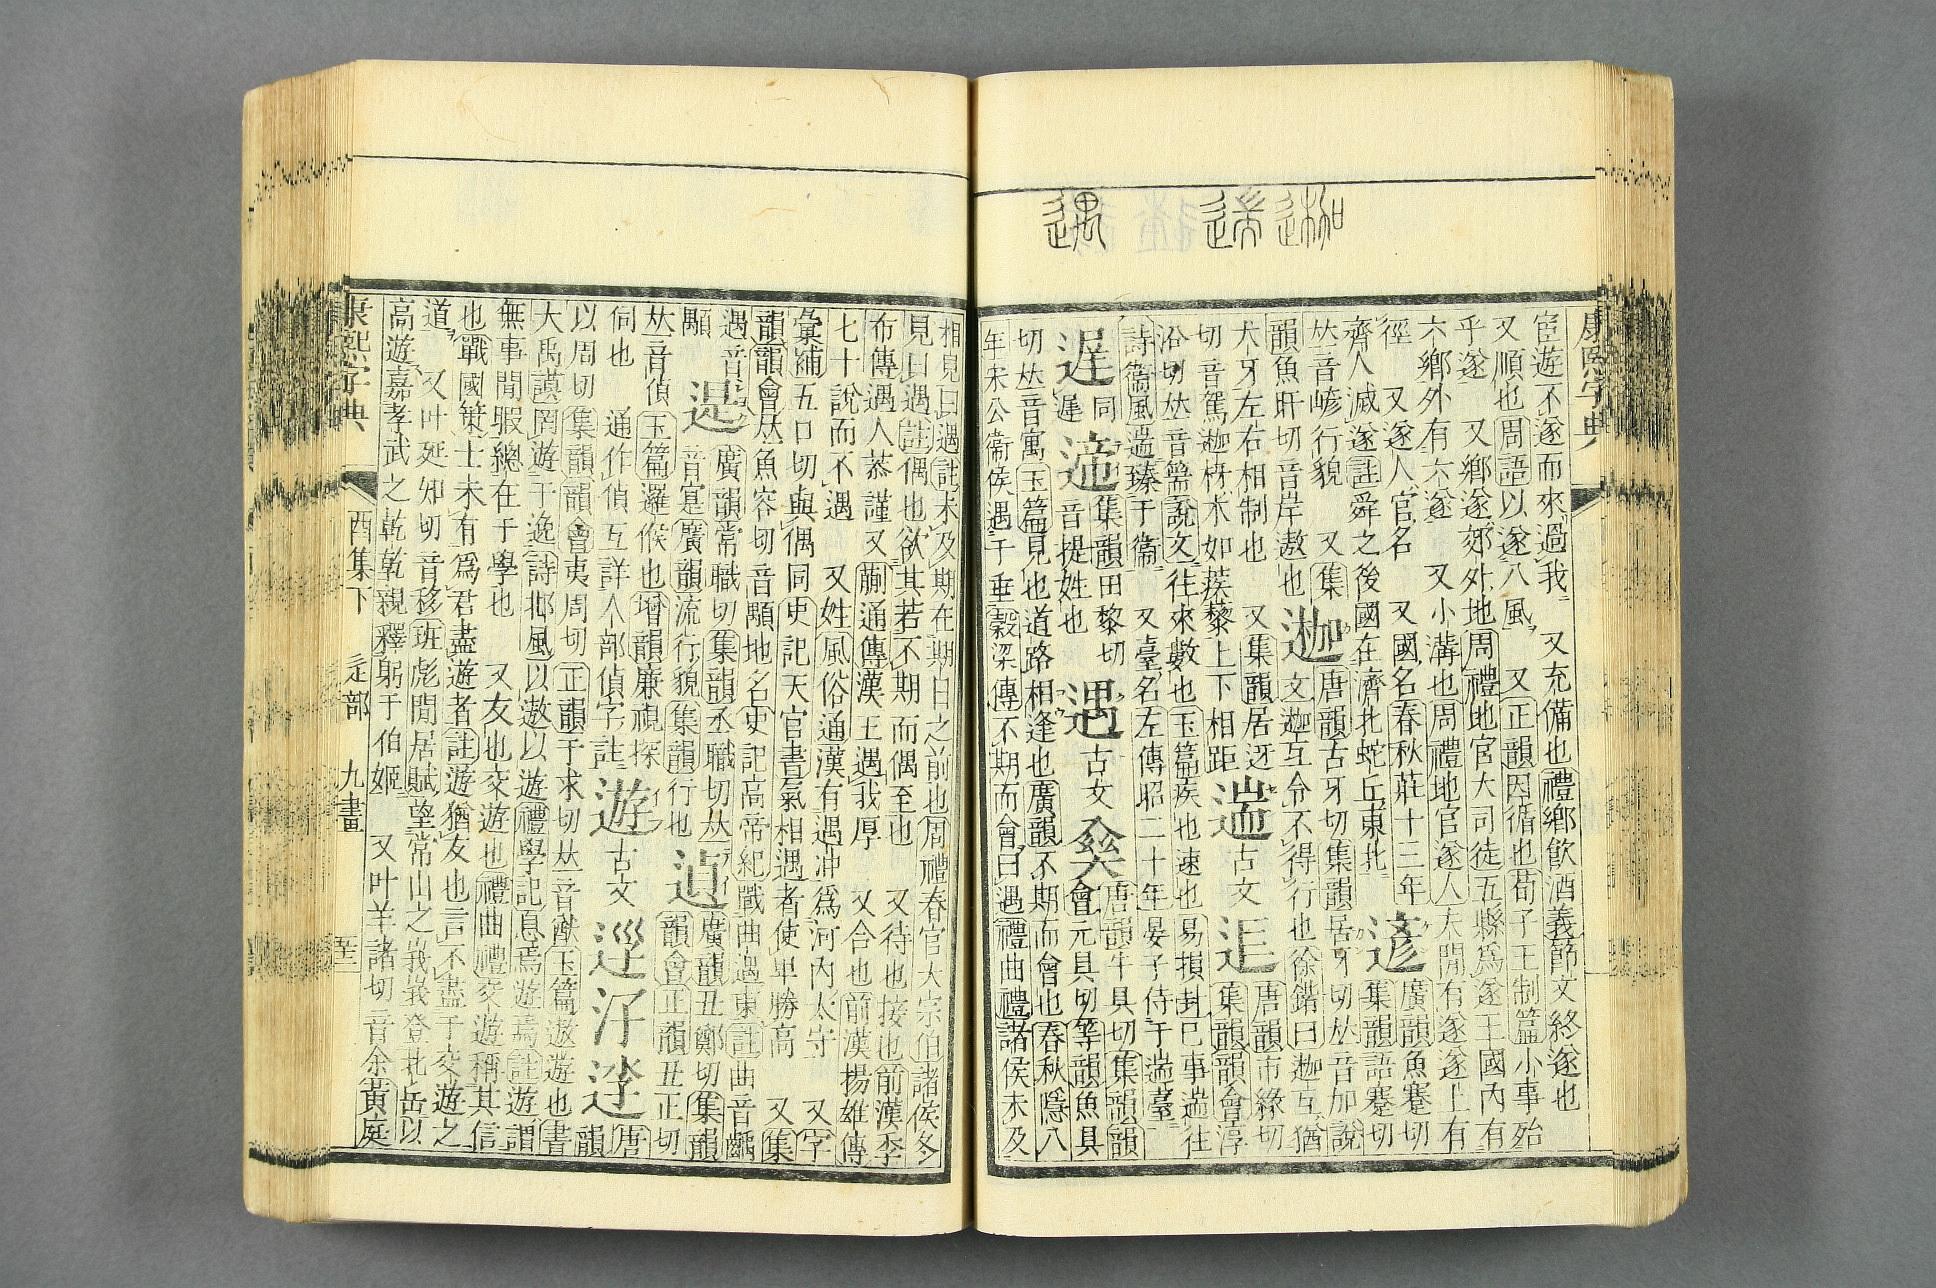 康熙字典
宦遊不遂而來過我 又充備也禮鄉飲酒義節文終遂也
又順也周語以遂八風 又正韻因循也荀子王制篇小事殆
乎遂 又鄉遂郊外地周禮地官大司徒五縣爲遂王國內有
六鄉外有六遂 又小溝也周禮地官遂人夫閒有遂遂上有
徑 又遂人官名 又國名春秋莊十三年
齊人滅遂註舜之後國在濟北蛇丘東北
遃廣韻魚蹇切集韻語蹇切
𠀤音巘行貌 又集
韻魚肝切音岸遨也
迦唐韻古牙切集韻居牙切𠀤音加說
文迦互令不得行也徐鍇曰迦互猶
犬牙左右相制也 又集韻居迓
切音駕迦枒木如蒺藜上下相距
遄古文𨒪唐韻市緣切
集韻韻會淳
沿切𠀤音篅說文往來數也玉篇疾也速也易損卦已事遄往
詩衞風遄臻于衞 又臺名左傳昭二十年晏子侍于遄臺
遟同遲
遆集韻田黎切
音提姓也
遇古文𠍆唐韻牛具切集韻韻
會元具切等韻魚具
切𠀤音寓玉篇見也道路相逢也廣韻不期而會也春秋隱八
年宋公衞侯遇于垂穀梁傳不期而會曰遇禮曲禮諸侯未及
相見曰遇註未及期在期日之前也周禮春官大宗伯諸侯冬
見曰遇註偶也欲其若不期而偶至也 又待也接也前漢季
布傳遇人恭謹又蒯通傳漢王遇我厚 又合也前漢揚雄傳
七十說而不遇 又姓風俗通漢有遇沖爲河內太守 又字
彙補五口切與偶同史記天官書氣相遇者使卑勝高 又集
韻韻會𠀤魚容切音顒地名史記高帝紀戰曲遇東註曲音齲
遇音
顒
遈廣韻常職切集韻丞職切𠀤
音寔廣韻流行貌集韻行也
遉廣韻丑鄭切集韻
韻會正韻丑正切
𠀤音偵玉篇邏候也增韻廉視探
伺也 通作偵互詳人部偵字註
遊古文𨒰汓𨔞唐韻
以周切集韻韻會夷周切正韻于求切𠀤音猷玉篇遨遊也書
大禹謨罔遊于逸詩邶風以敖以遊禮學記息焉遊焉註遊謂
無事閒暇總在于學也 又友也交遊也禮曲禮交遊稱其信
也戰國策士未有爲君盡遊者註遊猶友也言不盡于交遊之
道 又叶延知切音移班彪閒居賦望常山之峩峩登北岳以
高遊嘉孝武之乾乾親釋躬于伯姬 又叶羊諸切音余黃庭
康熙字典 酉集下 辵部 九畫